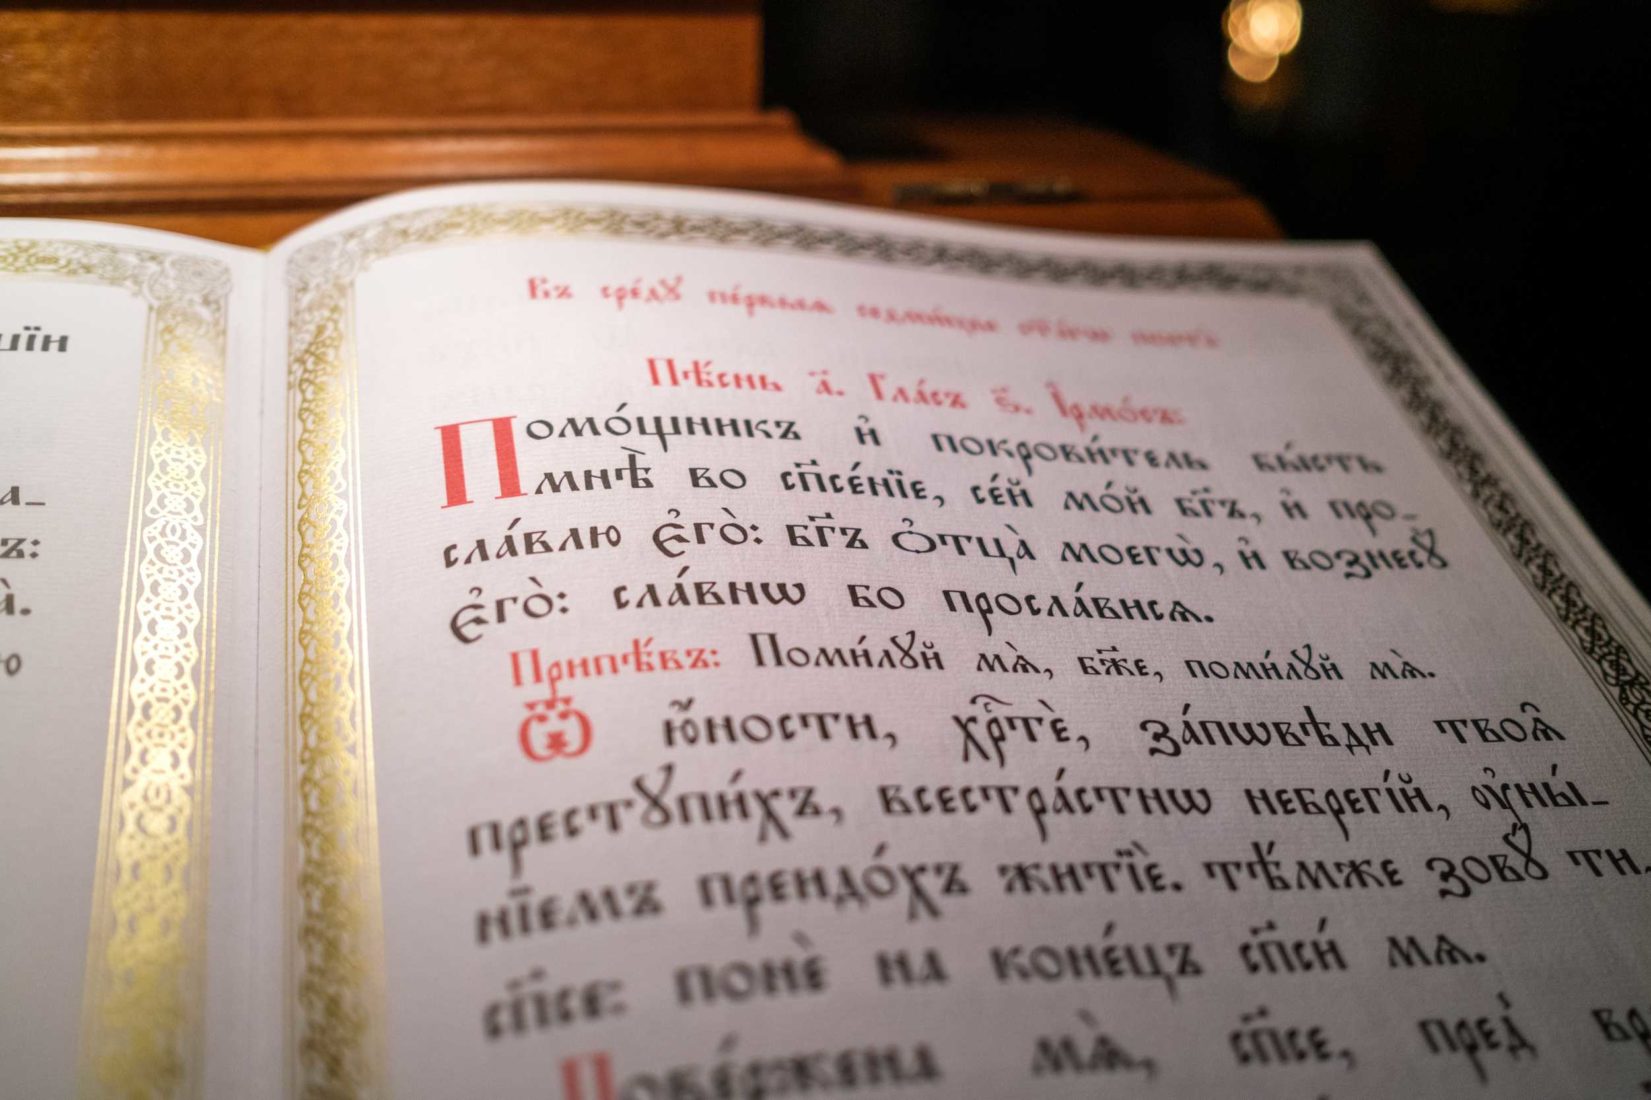 шїи
а_
ъ:
а̀.
ю
Въ сре́дꙋ пе́рвыѧ седми́цы
Пѣ́снь а҃. Гла́съ ѕ҃. І҆рмо́съ:
Помо́щникъ и҆ покрови́тель бы́сть
мнѣ̀ во сп҃се́нїе, се́й мо́й бг҃ъ, и҆ про_
сла́влю є҆го̀: бг҃ъ ѻ҆тца̀ моегѡ̀, и҆ вознесꙋ̀
є҆го̀: сла́внѡ бо просла́висѧ.
Припѣ́въ: Поми́лꙋй мѧ̀, бж҃е, поми́лꙋй мѧ̀.
Ѿ ю҆́ности, хрⷭ҇тѐ, за́пѡвѣди твоѧ̑
престꙋпи́хъ, всестра́стнѡ небрегі́й, ᲂу҆ны́_
нїемъ преидо́хъ житїѐ. тѣ́мже зовꙋ̀ ти,
сп҃се: понѐ на коне́цъ сп҃си́ мѧ.
Пове́ржена мѧ̀, сп҃се, пред̾